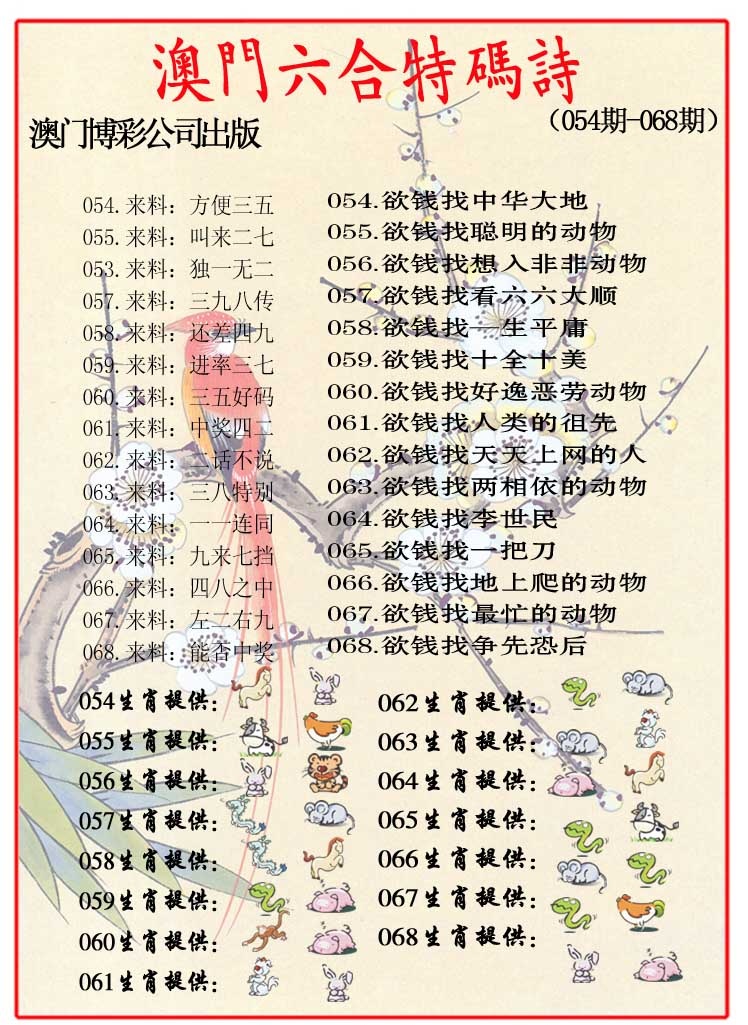 澳門六合特碼詩
澳门博彩公司出版
（054期-068期）
054.来料：方便三五
055.来料：叫来二七
053.来料：独一无二
057.来料：三九八传
058.来料：还差四九
059.来料：进率三七
060.来料：三五好码
061.来料：中奖四二
062.来料：二话不说
063.来料：三八特别
064.来料：一一连同
065.来料：九来七挡
066.来料：四八之中
067.来料：左二右九
068.来料：能否中奖
054.欲钱找中华大地
055.欲钱找聪明的动物
056.欲钱找想入非非动物
057.欲钱找看六六大顺
058.欲钱找一生平庸
059.欲钱找十全十美
060.欲钱找好逸恶劳动物
061.欲钱找人类的祖先
062.欲钱找天天上网的人
063.欲钱找两相依的动物
064.欲钱找李世民
065.欲钱找一把刀
066.欲钱找地上爬的动物
067.欲钱找最忙的动物
068.欲钱找争先恐后
054生肖提供：
055生肖提供：
056生肖提供：
057生肖提供：
058生肖提供：
059生肖提供：
060生肖提供：
061生肖提供：
062生肖提供：
063生肖提供：
064生肖提供：
065生肖提供：
066生肖提供：
067生肖提供：
068生肖提供：